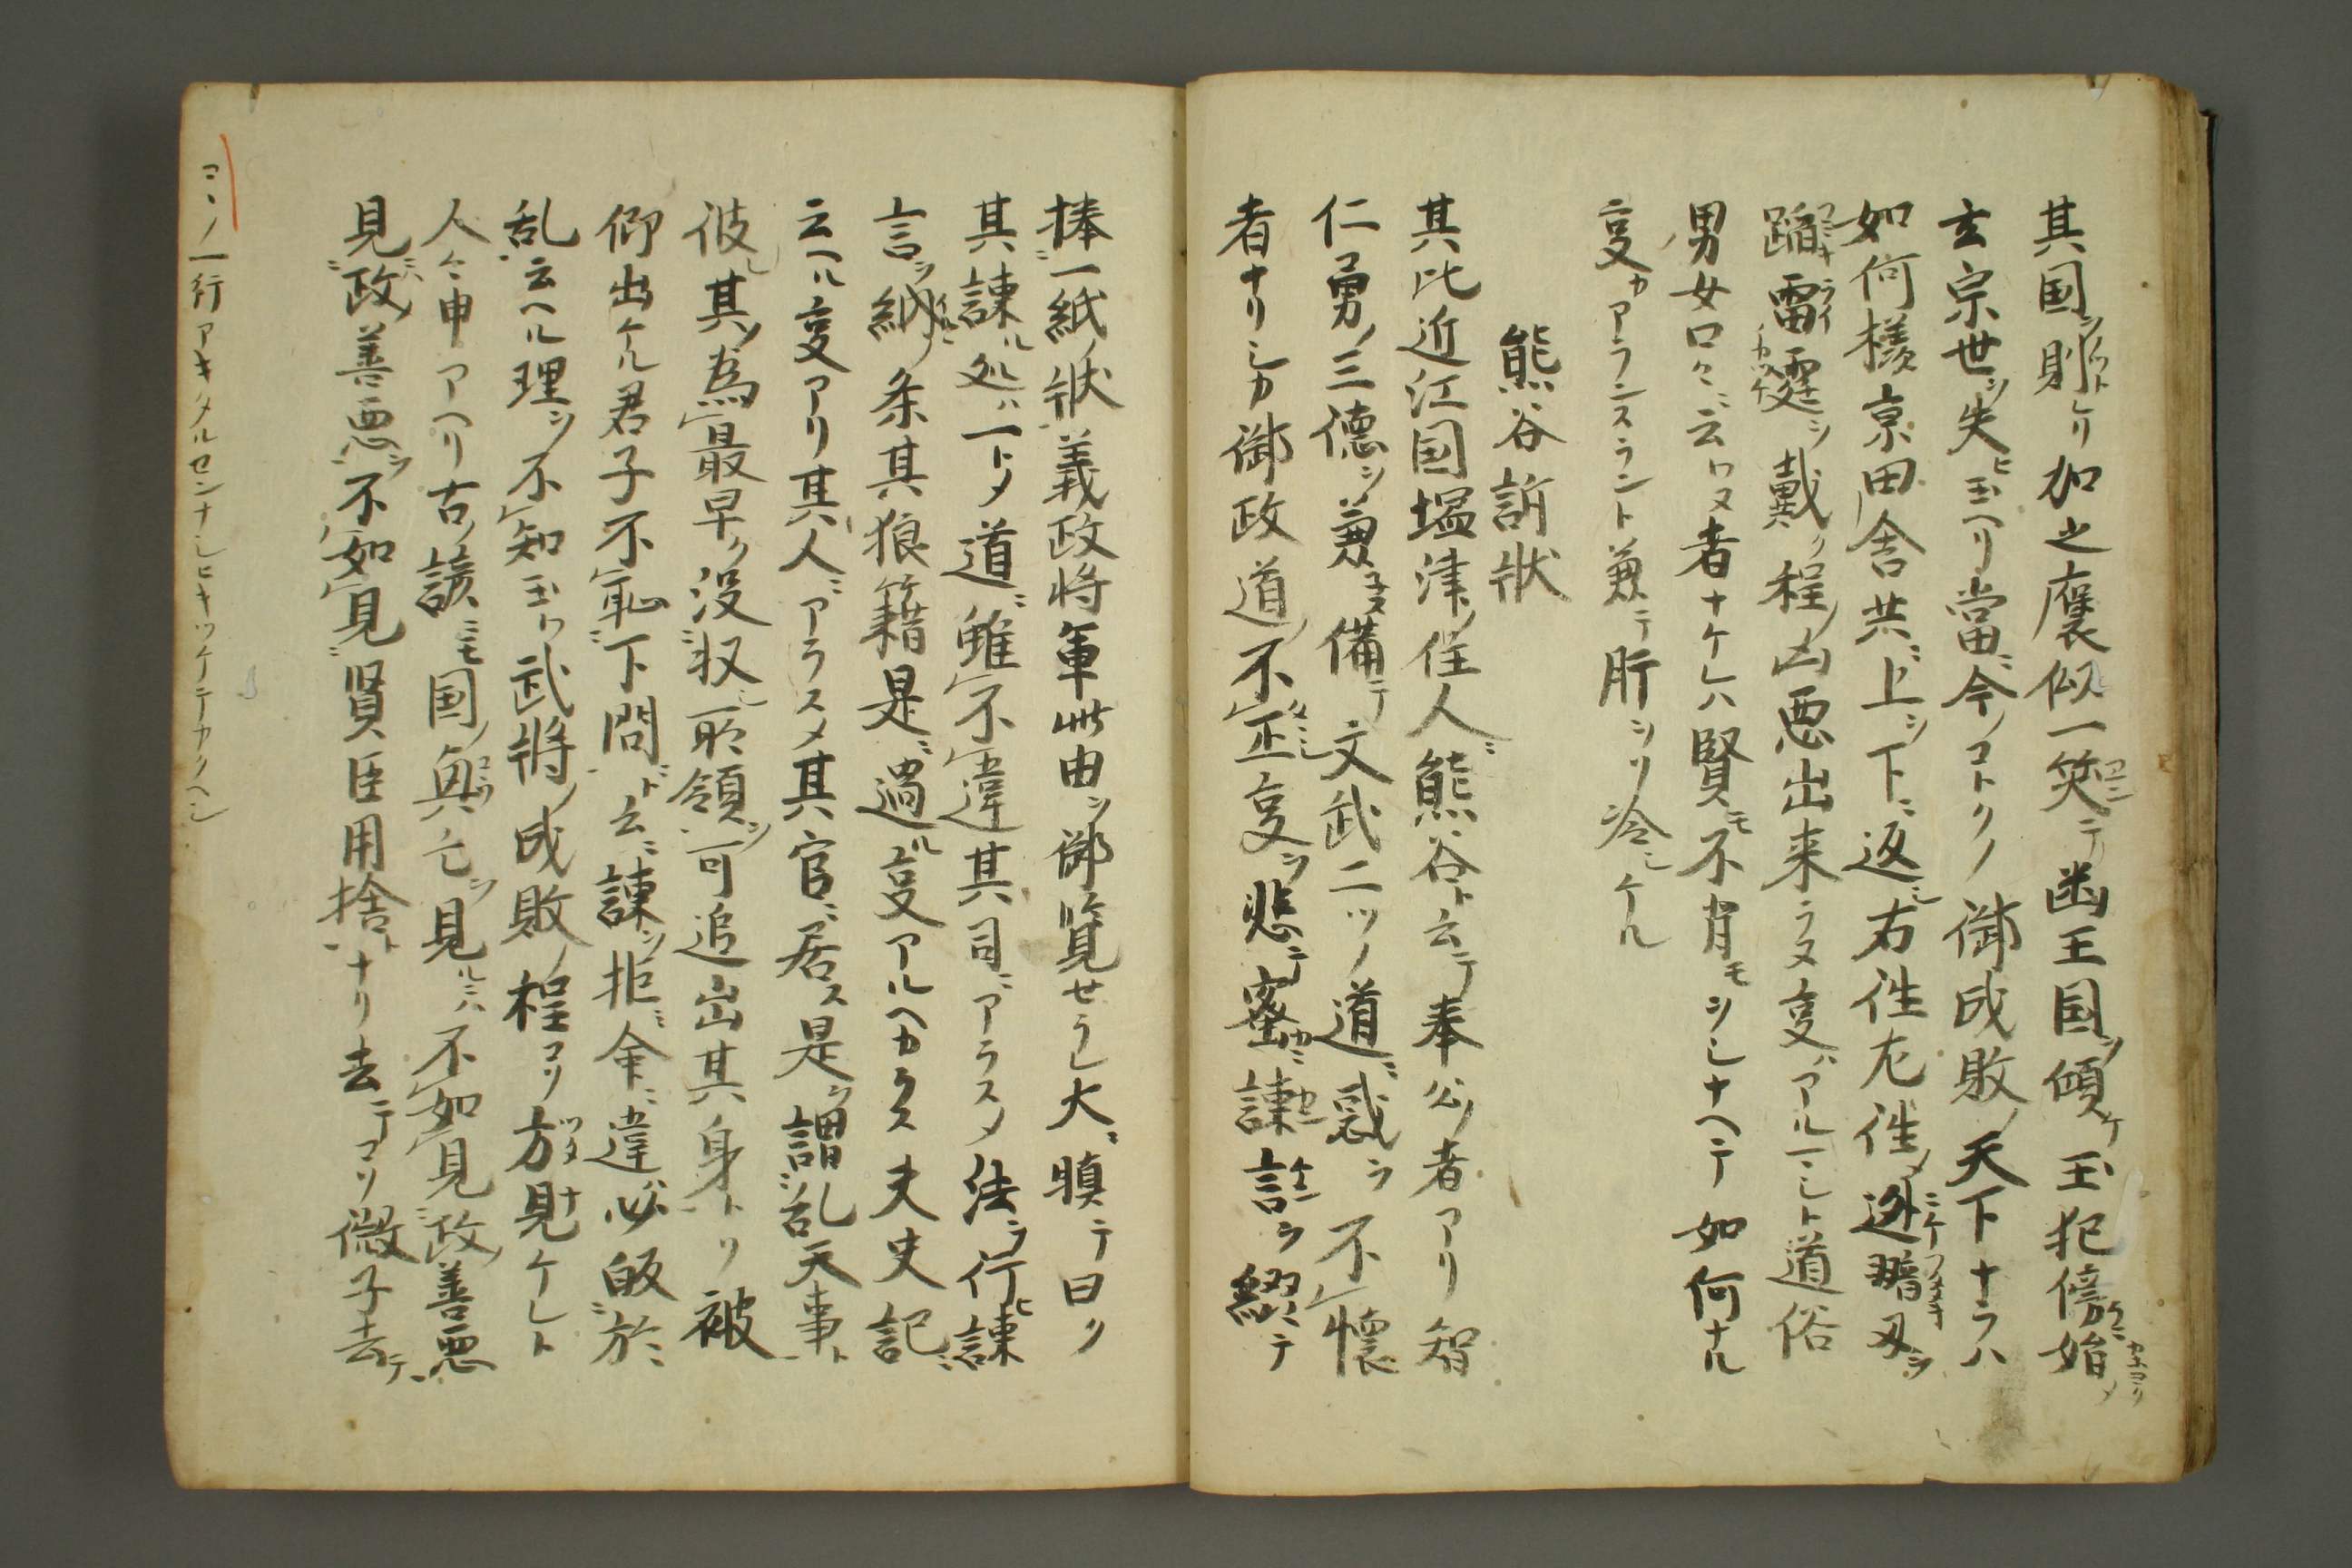 其国ヲ削ケリ加之褒似一笑テ幽王国ヲ傾ケ玉犯傍始メ
玄宗世ヲ失ヒ玉ヘリ當今ノコトクノ御成敗ノ天下ナラハ
如何様京田舎共ニ上ヲ下ニ返シ右往左往ノ迯暗刄ヲ
蹈雷霆ヲ戴ク程ノ凶悪出来ラヌ変ハアルマシト道俗
男女口々ニ云ワヌ者ナケレハ賢モ不肖モヲシナヘテ如何ナル
変カアランスラント兼テ肝ヲソ冷シケル
熊谷訴状
其比近江国塩津ノ住人ニ熊谷ト云テ奉公ノ者アリ智
仁勇ノ三徳ヲ兼備テ文武二ツノ道ニ惑ラ不懐
者ナリシカ御政道ノ不正変ヲ悲テ蜜ニ諌言ヲ綴テ
捧一紙ノ状義政将軍此由ヲ御覧セラレ大ニ瞋テ曰ク
其諌ル処ハ一トメ道ニ雖不違其司ニアラスメ法ヲ行ヒ諌
言ヲ納ルノ条其狼籍是ニ過ル変アルヘカラス夫史記ニ
云ヘル変アリ其人ニアラスメ其官ニ居ス是ヲ謂乱天事ト
彼レ其ヲ為最早ク没収シ所領ヲ可追出其身トソ被
仰出ケル君子不恥下問ニト云ニ諌ヲ拒ミ命ニ違必皈於
乱云ヘル理ヲ不知玉ワ武将ノ成敗ノ程コソ方見ケレト
人々申アヘリ古ノ諺ニモ国ノ興亡ヲ見ルニハ不如見政善悪
見政善悪ヲ不如見賢臣用捨トナリ去テコソ微子去テ
コヽノ一行アキタルセンナシヒキツケテカクヘシ